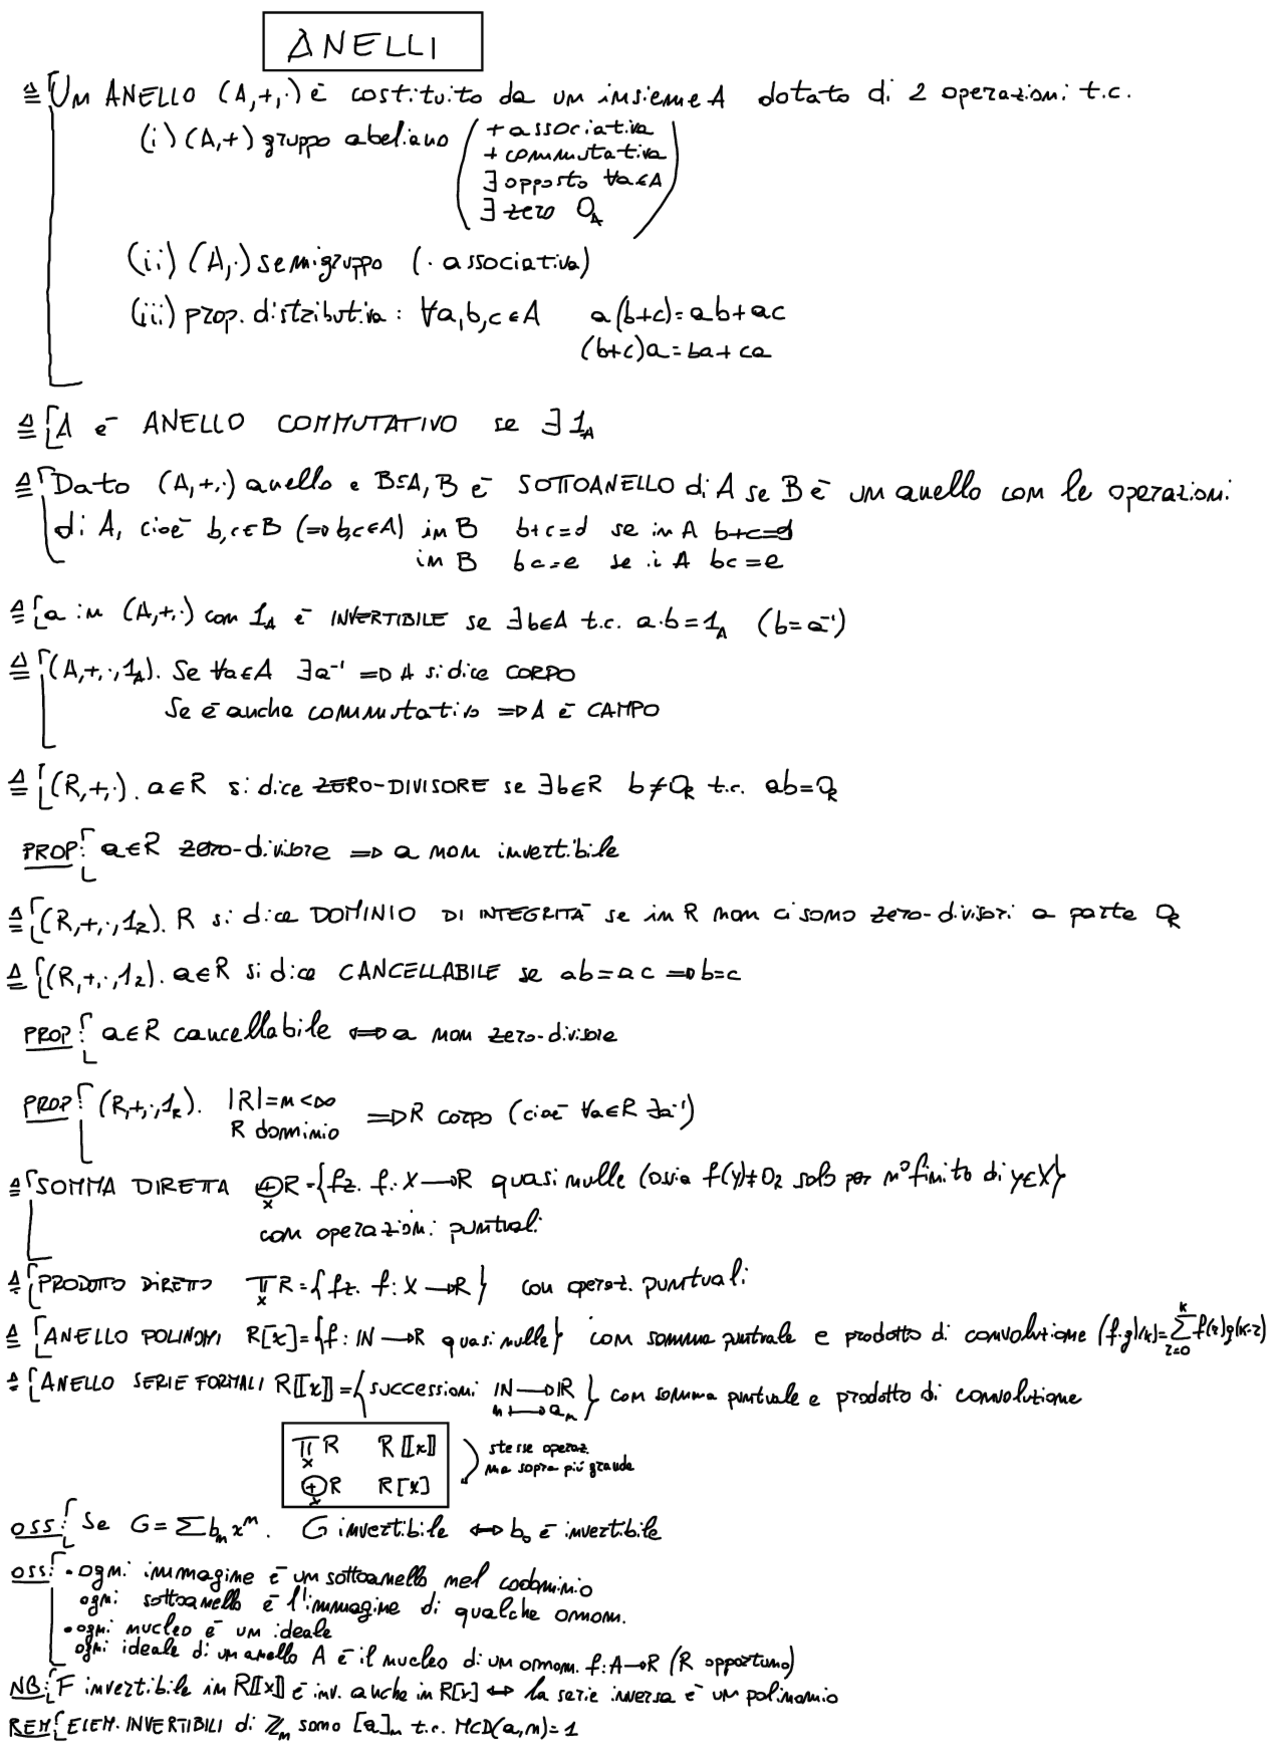 ANELLI
≜ Un ANELLO (A,+,·) è costituito da un insieme A dotato di 2 operazioni t.c.
(i) (A,+) gruppo abeliano
+ associativa
+ commutativa
∃ opposto ∀a∈A
∃ zero 0_A
(ii) (A,·) semigruppo (· associativa)
(iii) prop. distributiva: ∀a,b,c∈A a(b+c)=ab+ac
(b+c)a=ba+ca
≜ A è ANELLO COMMUTATIVO se ∃ 1_A
≜ Dato (A,+,·) anello e B⊆A, B è SOTTOANELLO di A se B è un anello con le operazioni
di A, cioè b,c∈B (⇒b,c∈A) in B b+c=d se in A b+c=d
in B bc=e se i A bc=e
≜ a in (A,+,·) con 1_A è INVERTIBILE se ∃b∈A t.c. a·b=1_A (b=a⁻¹)
≜ (A,+,·,1_A). Se ∀a∈A ∃a⁻¹ ⇒ A si dice CORPO
Se è anche commutativo ⇒ A è CAMPO
≜ (R,+,·). a∈R si dice ZERO-DIVISORE se ∃b∈R b≠0_R t.c. ab=0_R
PROP: a∈R zero-divisore ⇒ a non invertibile
≜ (R,+,·,1_R). R si dice DOMINIO DI INTEGRITÀ se in R non ci sono zero-divisori a parte 0_R
≜ (R,+,·,1_R). a∈R si dice CANCELLABILE se ab=ac ⇒ b=c
PROP: a∈R cancellabile ⇔ a non zero-divisore
PROP: (R,+,·,1_R). |R|=n<∞
R dominio ⇒ R corpo (cioè ∀a∈R ∃a⁻¹)
≜ SOMMA DIRETTA ⊕_X R={fz. f: X→R quasi nulle (ossia f(y)≠0_R solo per n° finito di y∈X}
con operazioni puntuali
≜ PRODOTTO DIRETTO ∏_X R={fz. f: X→R} con operaz. puntuali
≜ ANELLO POLINOMI R[x]={f: ℕ→R quasi nulle} con somma puntuale e prodotto di convoluzione (f·g)(k)=∑_{r=0}^{k} f(r)g(k-r)
≜ ANELLO SERIE FORMALI R⟦x⟧={successioni ℕ→ℝ n↦a_n} con somma puntuale e prodotto di convoluzione
∏_X R R⟦x⟧
⊕_X R R[x]
stesse operaz.
ma sopra più grande
OSS: Se G=∑b_n xⁿ. G invertibile ⇔ b₀ è invertibile
OSS: • ogni immagine è un sottoanello nel codominio
ogni sottoanello è l'immagine di qualche omom.
• ogni nucleo è un ideale
ogni ideale di un anello A è il nucleo di un omom. f: A→R (R opportuno)
NB: F invertibile in R⟦x⟧ è inv. anche in R[x] ⇔ la serie inversa è un polinomio
REM: ELEM. INVERTIBILI di ℤ_n sono [a]_n t.c. MCD(a,n)=1